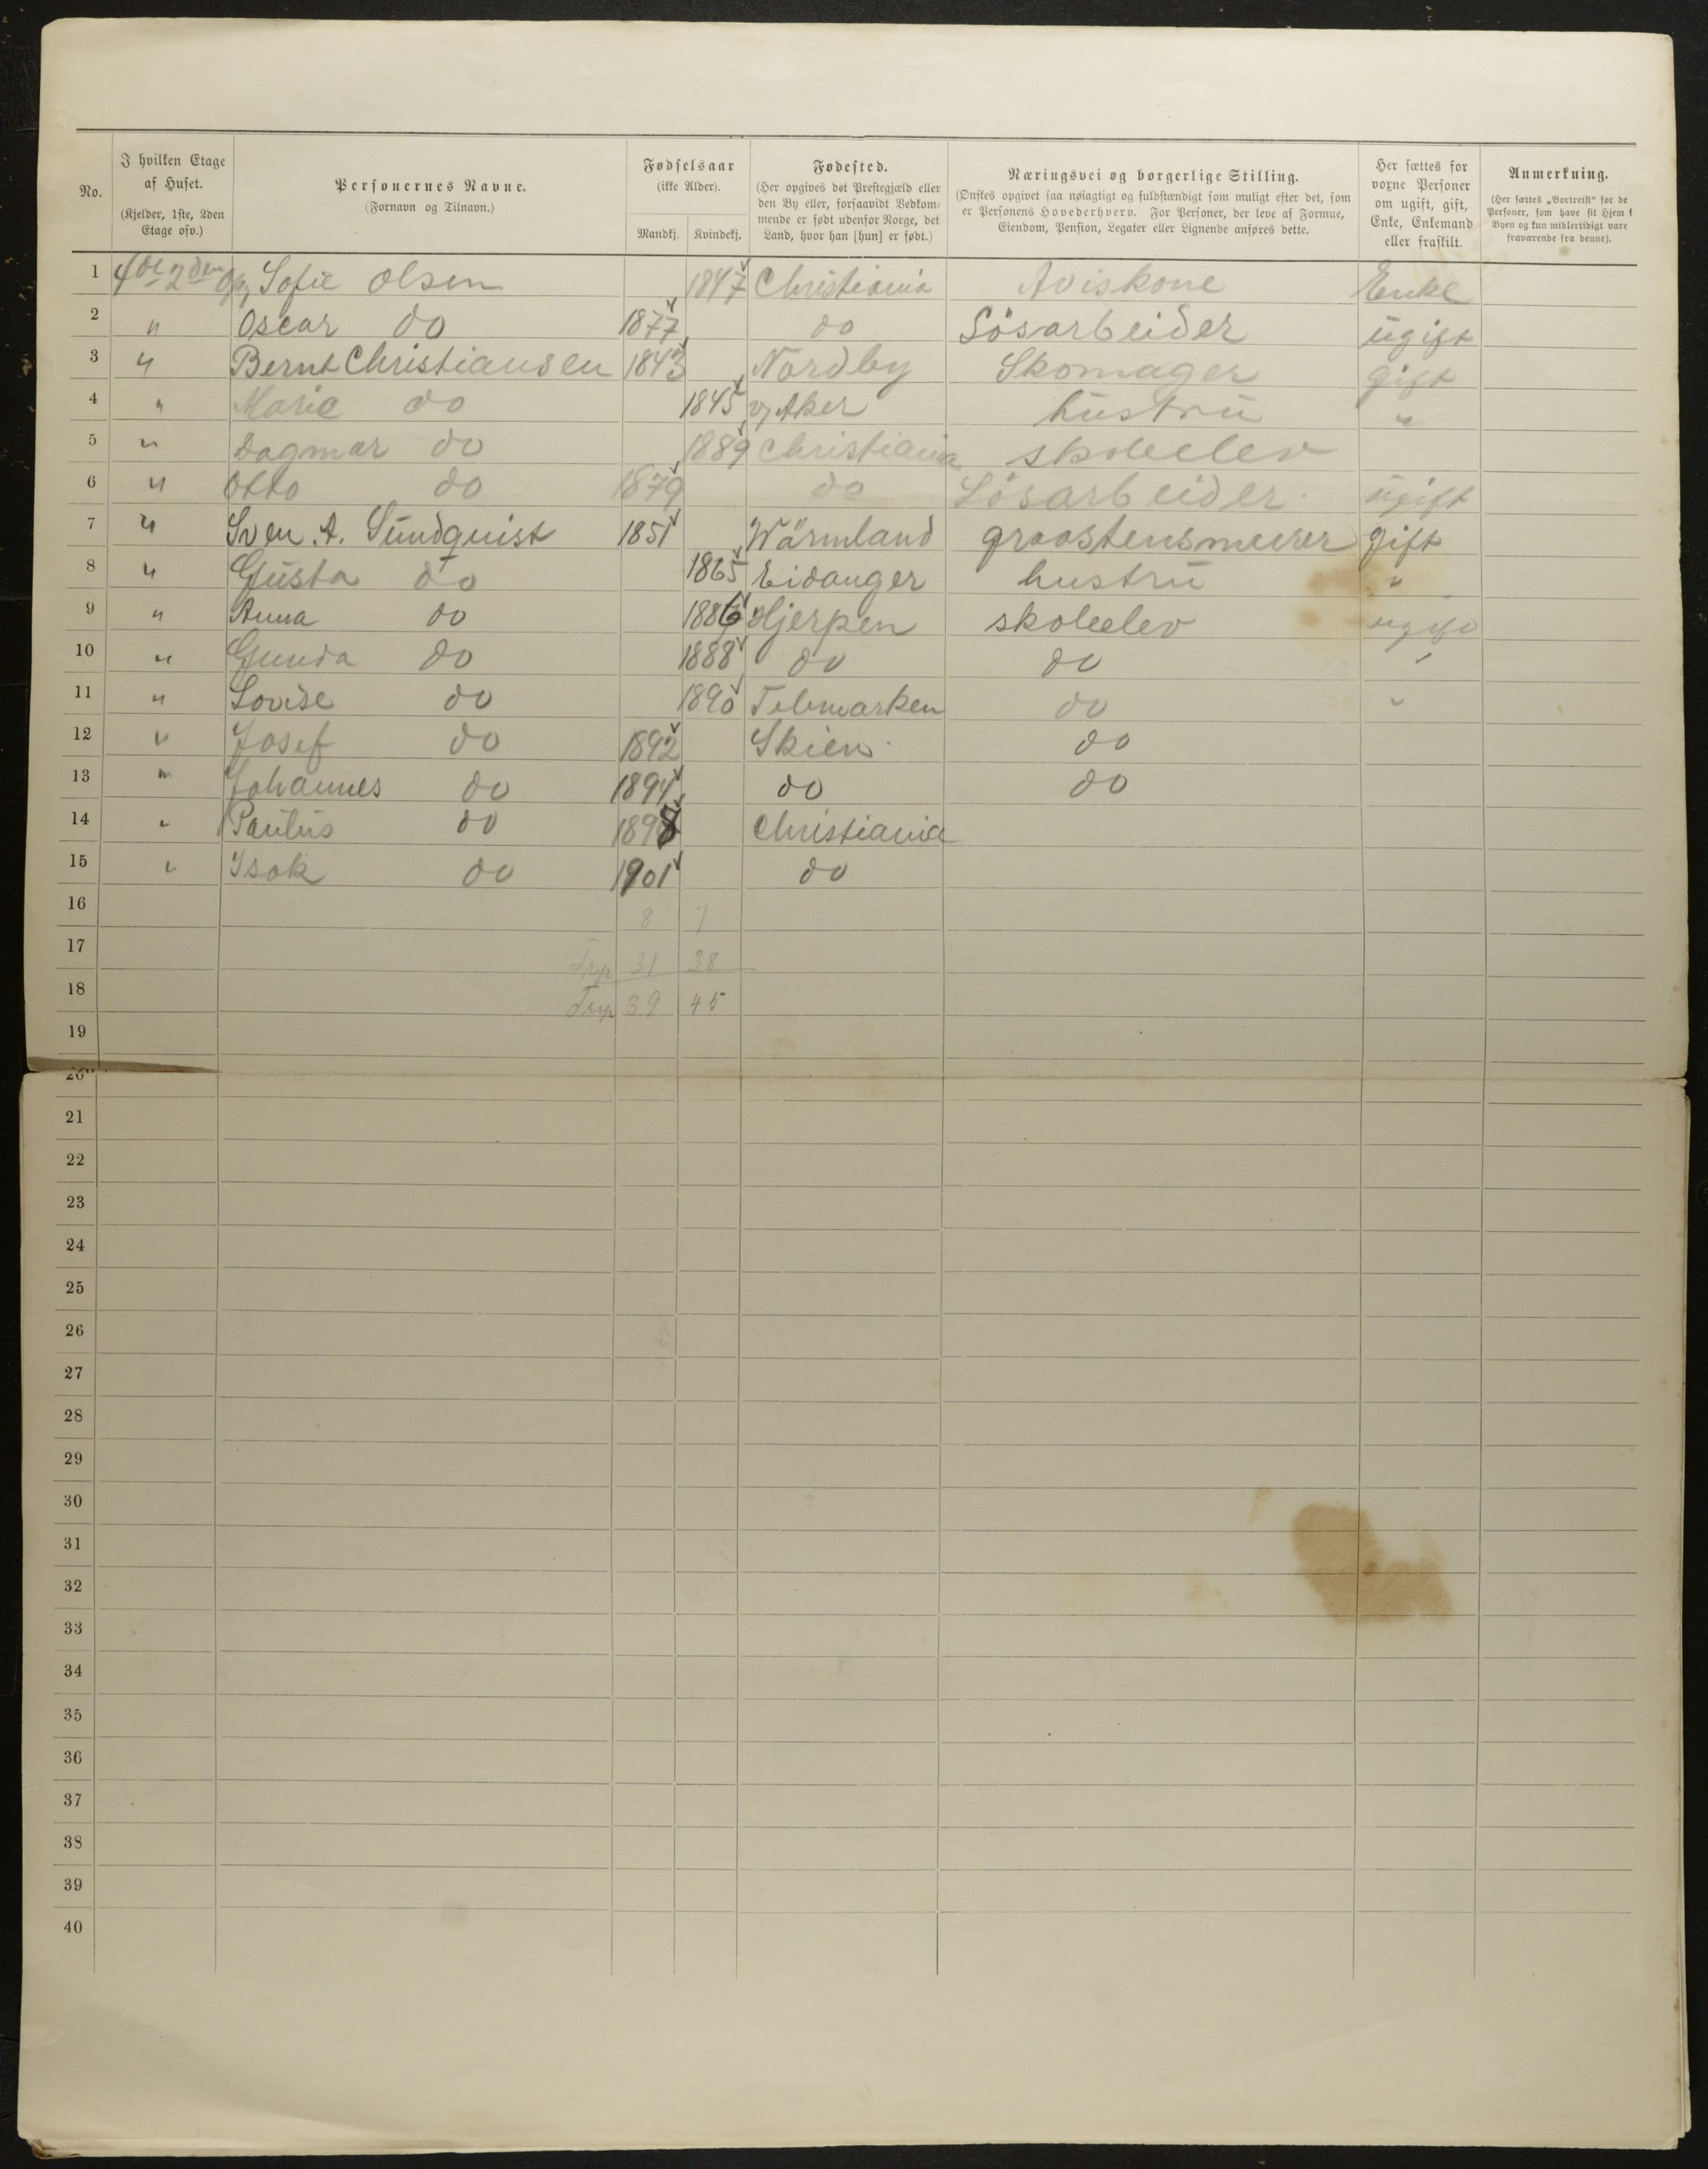 No.
I hvilken Etage af Huset.
(Kjelder, 1ste, 2den Etage osv.)
Personernes Navne.
(Fornavn og Tilnavn.)
Fødselsaar
(ikke Alder).
Mandkj. Kvindekj.
Fødested.
(Her opgives det Prestegjæld eller den By eller, forsaavidt Vedkommende er født udenfor Norge, det Land, hvor han [hun] er født.)
Næringsvei og borgerlige Stilling.
(Ønskes opgivet saa nøiagtigt og fuldstændigt som muligt efter det, som er Personens Hovederhverv. For Personer, der leve af Formue, Eiendom, Pension, Legater eller Lignende anføres dette.
Her sættes for voxne Personer om ugift, gift, Enke, Enkemand eller fraskilt.
Anmerkning.
(Her sættes „Bortreist" for de Personer, som have sit Hjem i Byen og kun midlertidigt vare fraværende fra denne).
1 4de 2den Opg Sofie Olsen 1847 Christiania Aviskone Enke
2 " Oscar do 1877 do Lösarbeider ugift
3 " Bernt Christiansen 1843 Nordby Skomager gift
4 " Marie do 1845 v/ Aker hustru "
5 " Dagmar do 1889 Christiania skoleelev
6 " Otto do 1879 do Lösarbeider ugift
7 " Sven A. Sundquist 1851 Wärmland graastensmurer gift
8 " Gusta do 1865 Eidanger hustru "
9 " Anna do 1886 Gjerpen skoleelev ugift
10 " Gunda do 1888 do do "
11 " Lovise do 1890 Telemarken do "
12 " Josef do 1892 Skien do
13 " Johannes do 1894 do do
14 " Paulus do 1898 Christiania
15 " Isak do 1901 do
16 8 7
17 Trp 31 38
18 Trp 39 45
19
20
21
22
23
24
25
26
27
28
29
30
31
32
33
34
35
36
37
38
39
40